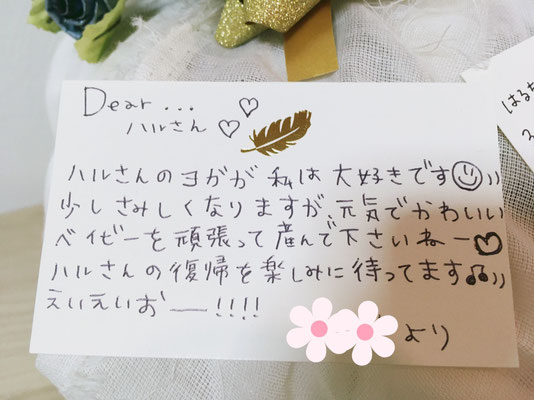 Dear...
ハルさん♡♡
ハルさんのヨガが私は大好きです☺))
少しさみしくなりますが、元気でかわいい
ベイビーを頑張って産んで下さいねー♡
ハルさんの復帰を楽しみに待ってます♫))
えいえいおー!!!!
より
はるち